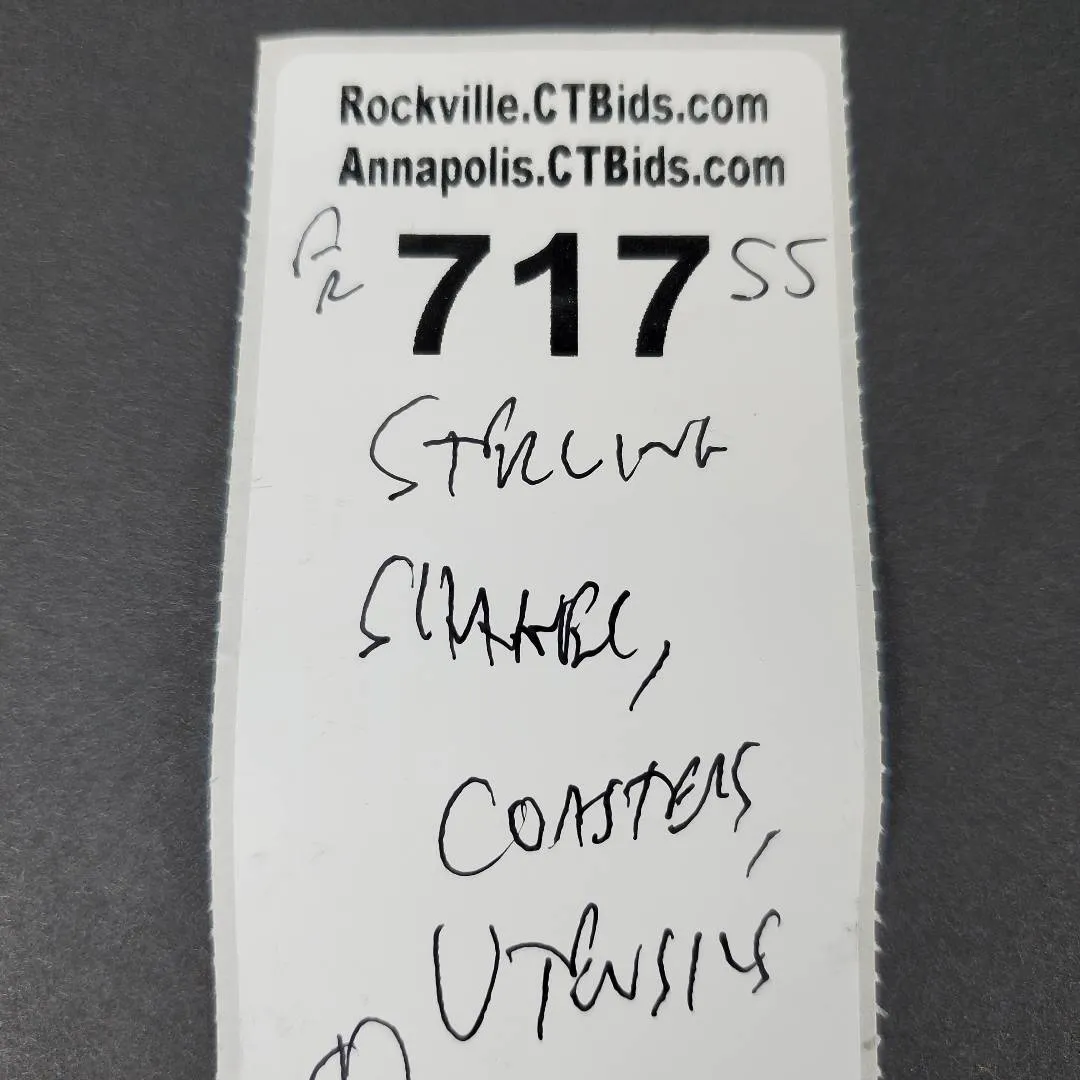 Rockville.CTBids.com
Annapolis.CTBids.com
AR 717 SS
STERLING
COASTERS,
UTENSILS